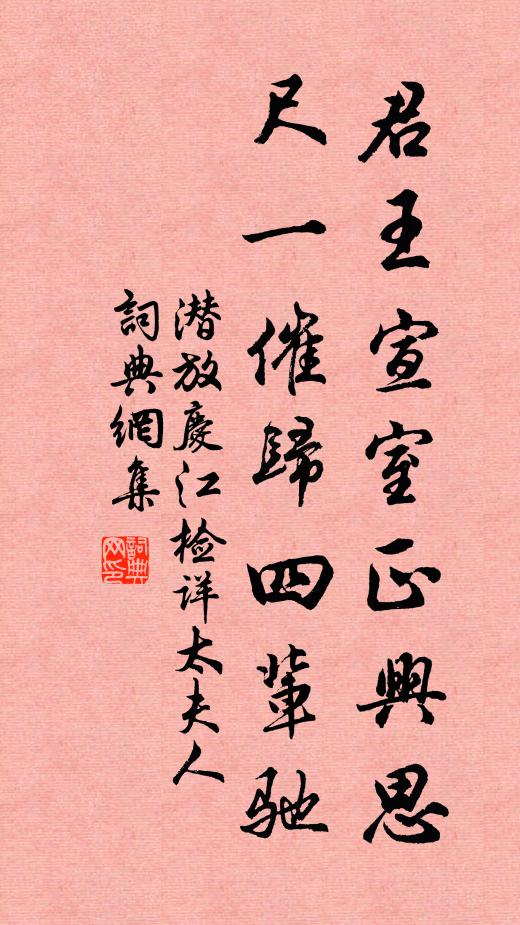 君王宣室正興思
尺一催歸四輩馳
潜放慶江檢详太夫人
詞典網集
詞典網印